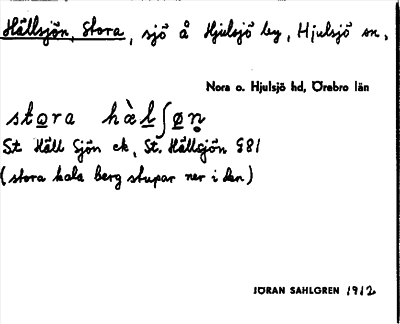 Hällsjön, Stora, sjö å Hjulsjö by, Hjulsjö sn,
Nora o. Hjulsjö hd, Örebro län
stora hàlʃøn
St Häll Sjön ek, St. Hällsjön G81
(stora kala berg stupar ner i den)
JÖRAN SAHLGREN 1912